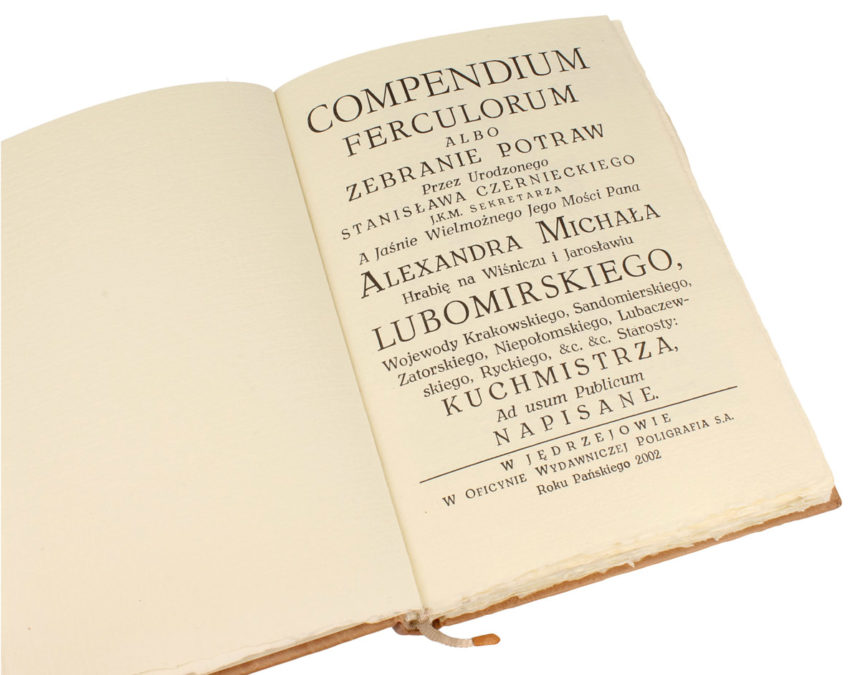 COMPENDIUM
FERCULORUM
ALBO
ZEBRANIE POTRAW
Przez Urodzonego
STANISŁAWA CZERNIECKIEGO
J.K.M. SEKRETARZA
A Jaśnie Wielmożnego Jego Mości Pana
ALEXANDRA MICHAŁA
Hrabię na Wiśniczu i Jarosławiu
LUBOMIRSKIEGO,
Wojewody Krakowskiego, Sandomierskiego,
Zatorskiego, Niepołomskiego, Lubaczew-
skiego, Ryckiego, &c. &c. Starosty:
KUCHMISTRZA,
Ad usum Publicum
NAPISANE.
W JĘDRZEJOWIE
W OFICYNIE WYDAWNICZEJ POLIGRAFIA S.A.
Roku Pańskiego 2002